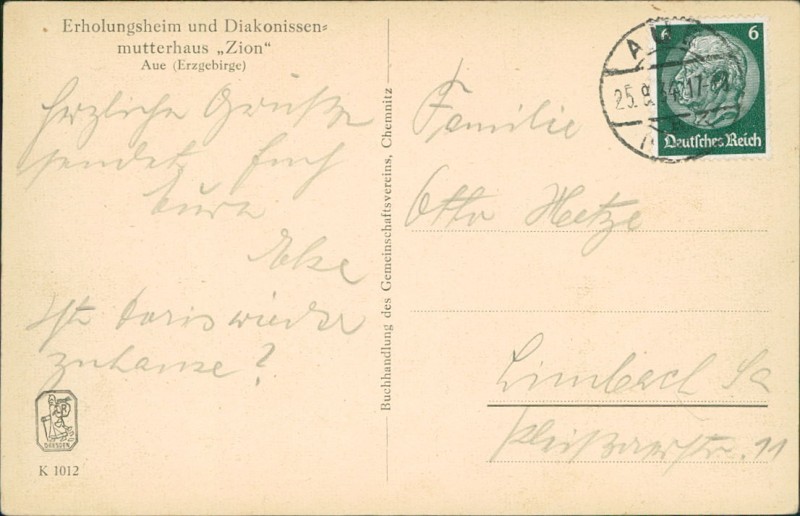 Erholungsheim und Diakonissen=
mutterhaus „Zion“
Aue (Erzgebirge)
Herzliche Grüße
sendet Euch
Eure
Else
Ist Doris wieder
zuhause?
DRESDEN
K 1012
Buchhandlung des Gemeinschaftsvereins, Chemnitz
6 6
Deutsches Reich
AUE
25.9.34.17-
Familie
Otto Hetze
Limbach Sa
11